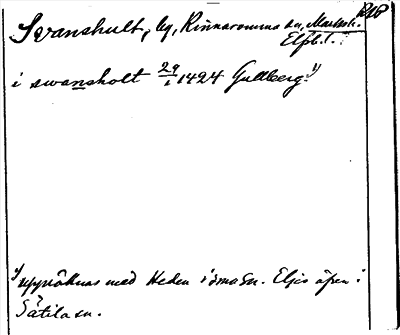 Svanshult, by, Kinnarumma sn, Marks h.
Elfsb.l.
i swansholt 29/1 1424 Gullberg. 1)
1) uppräknas med Heden i sma sn. Eljes äfven i
Sätila sn.